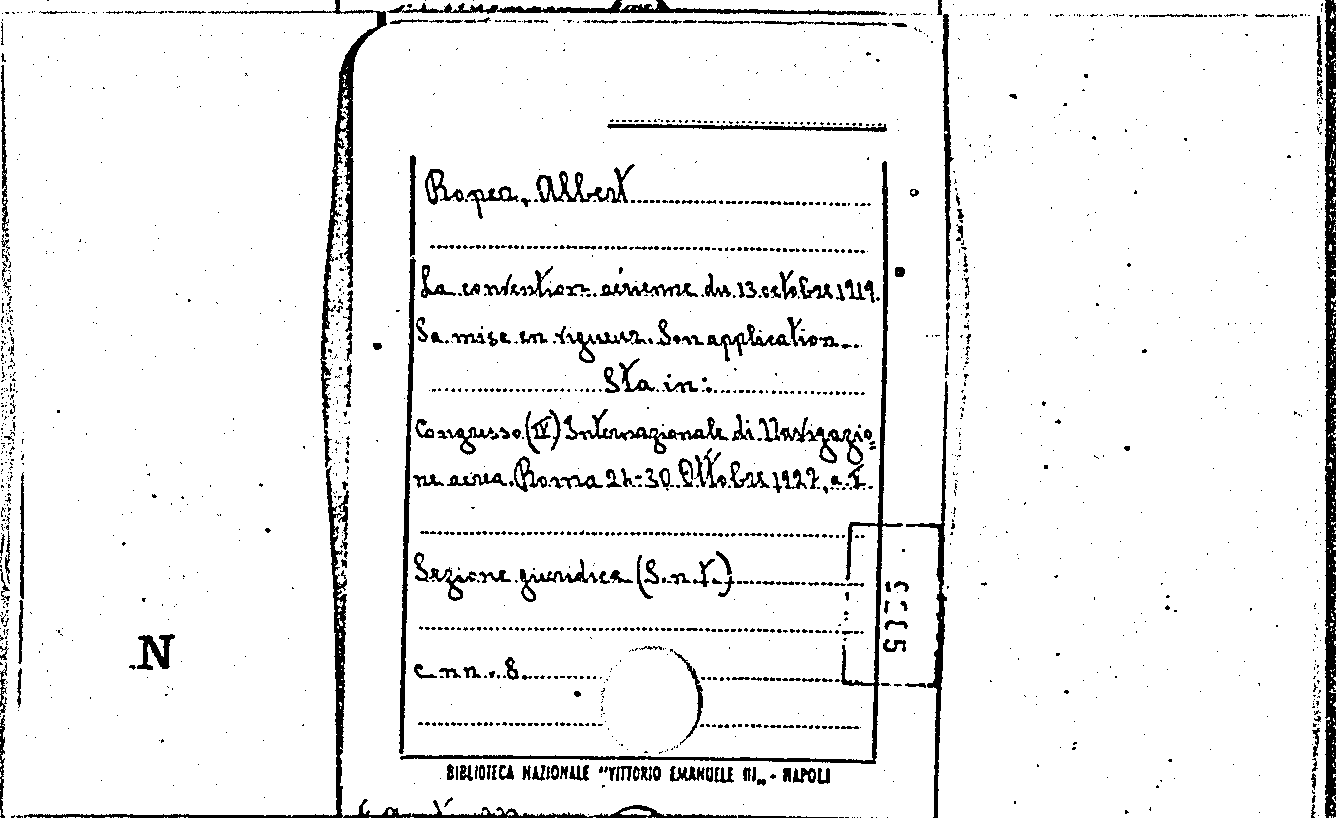 Roper, Albert
La convention aérienne du 13 octobre 1919.
Sa mise en vigueur. Son application.
Sta in:
Congresso (IV) Internazionale di Navigazio=
ne aerea. Roma 24-30 Ottobre 1927, a. V.
Sezione giuridica (S. n. t.)
c nn. 8.
N
BIBLIOTECA NAZIONALE "VITTORIO EMANUELE III„ - NAPOLI